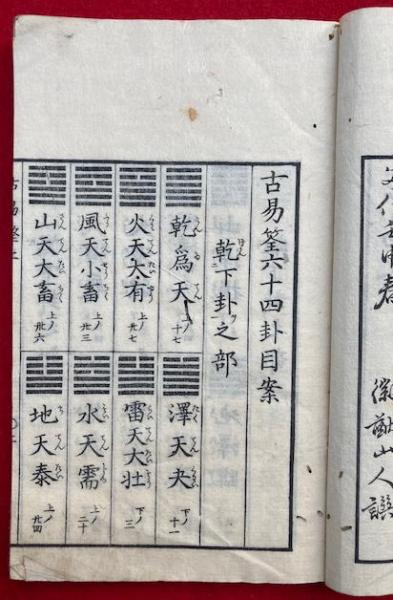 山人譔
古易筌六十四卦目案
乾下卦之部
乾爲天 上ノ十七
澤天夬 下ノ十一
火天大有 上ノ廿七
雷天大壮 下ノ三
風天小畜 上ノ廿三
水天需 上ノ二十
山天大畜 上ノ廿六
地天泰 上ノ廿四